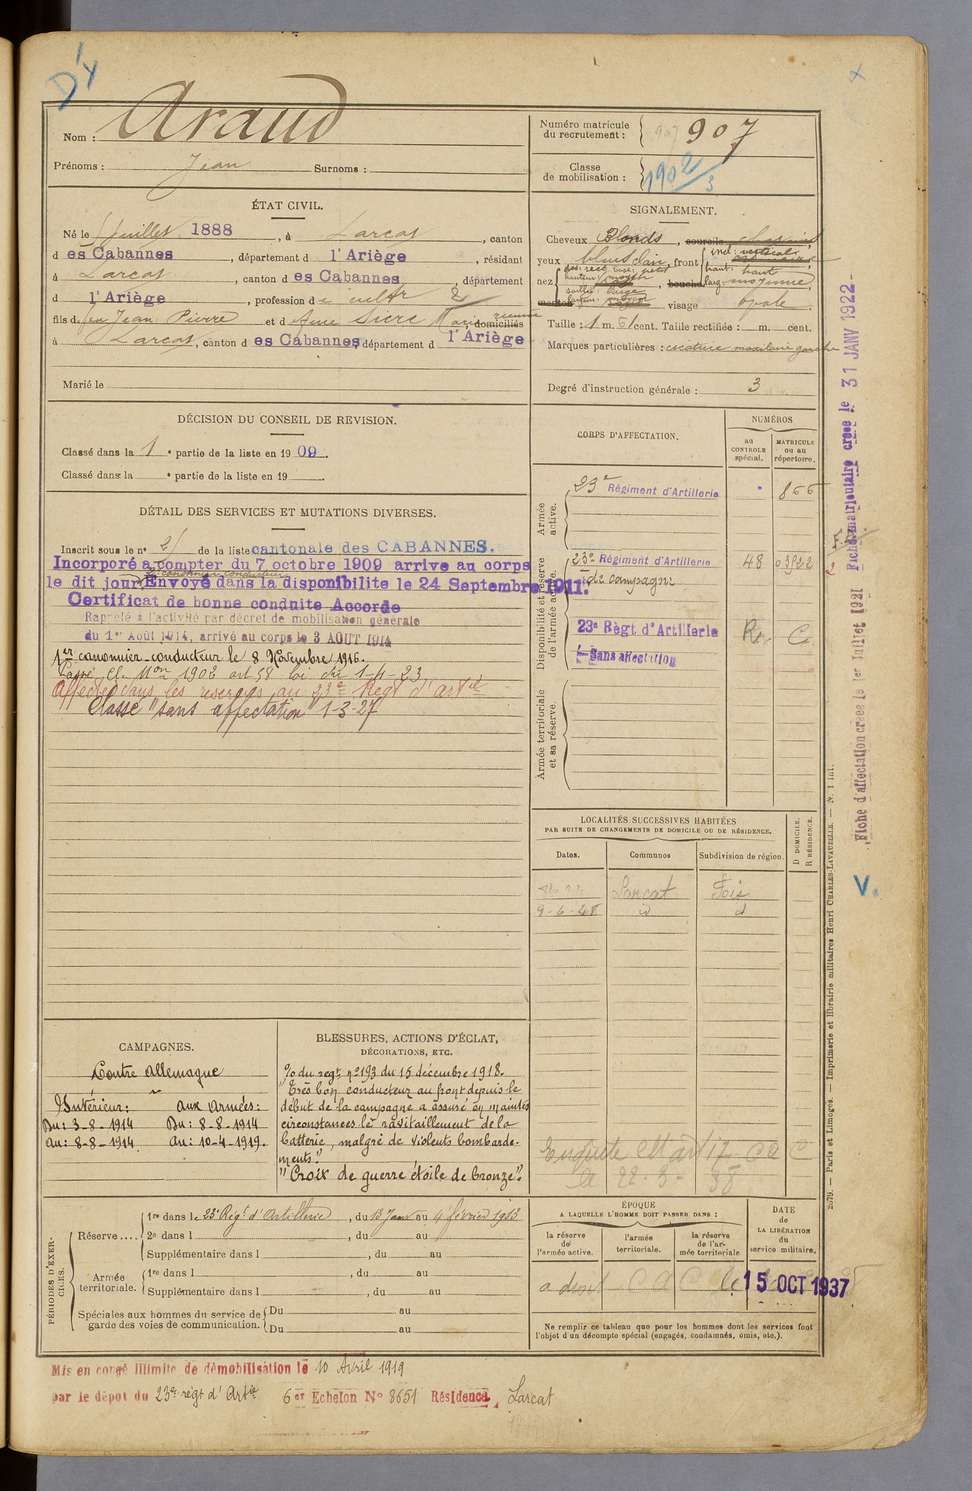 D Y
Nom : Araud
Prénoms : Jean Surnoms :
Numéro matricule du recrutement : 907 907
Classe de mobilisation : 1902/3
ÉTAT CIVIL.
Né le Juillet 1888, à Larcat, canton
d es Cabannes, département d l'Ariège, résidant
à Larcat, canton d es Cabannes, département
d l'Ariège, profession d e cultr 2
fils d feu Jean Pierre et d Anne Sicre Marie domiciliés
à Larcat, canton d es Cabannes, département d l'Ariège
Marié le
SIGNALEMENT.
Cheveux Blonds, sourcils
yeux bleus clair, front incl: verticale
haut: haut
nez dos: rect. base: petit bouche larg: moyenne
menton visage ovale
Taille : 1 m. 61 cent. Taille rectifiée : m. cent.
Marques particulières : cicatrice maxilaire gauche
Degré d'instruction générale : 3
DÉCISION DU CONSEIL DE REVISION.
Classé dans la 1e partie de la liste en 1909.
Classé dans la e partie de la liste en 19
DÉTAIL DES SERVICES ET MUTATIONS DIVERSES.
Inscrit sous le n° 2 de la liste cantonale des CABANNES.
Incorporé a compter du 7 octobre 1909 arrive au corps
le dit jour. Envoyé dans la disponibilite le 24 Septembre 1911.
Certificat de bonne conduite Accordé
Rappelé à l'activité par décret de mobilisation générale
du 1er Août 1914, arrivé au corps le 3 AOUT 1914
1er canonnier-conducteur le 8 Novembre 1916.
Passé cl. Mon 1902 art 58 loi du 1-4-23
Affecté dans les réserves au 23e Regt d'artie
Classé "sans affectation" 1-3-27
CORPS D'AFFECTATION.
NUMÉROS
au CONTROLE spécial.
MATRICULE ou au répertoire.
Armée active.
23e Régiment d'Artillerie 866
Disponibilité et réserve de l'armée active.
23e Régiment d'Artillerie 48
de campagne
23e Règt d'Artillerie R. C
Sans affectation
Armée territoriale et sa réserve.
LOCALITÉS SUCCESSIVES HABITÉES
PAR SUITE DE CHANGEMENTS DE DOMICILE OU DE RÉSIDENCE.
Dates. Communes Subdivision de région. D DOMICILE. R RÉSIDENCE.
Larcat Foix
9-6-28 d d
CAMPAGNES.
Contre Allemagne
Intérieur: aux Armées:
Du: 3-8-1914 Du: 8-8-1914
Au: 8-8-1914 Au: 10-4-1919.
BLESSURES, ACTIONS D'ÉCLAT,
DÉCORATIONS, ETC.
% du regt n° 2193 du 15 décembre 1918.
"Très bon conducteur au front depuis le
début de la campagne a assuré en maintes
circonstances le ravitaillement de la
batterie, malgré de violents bombarde-
ments."
"Croix de guerre étoile de bronze".
PÉRIODES D'EXERCICES.
Réserve
1re dans l e 23e Régt d'Artillerie, du au 4 février 1913
2e dans l , du au
Supplémentaire dans l , du au
Armée territoriale.
1re dans l , du au
Supplémentaire dans l , du au
Spéciales aux hommes du service de garde des voies de communication.
Du au
Du au
ÉPOQUE
A LAQUELLE L'HOMME DOIT PASSER DANS :
la réserve de l'armée active.
l'armée territoriale.
la réserve de l'armée territoriale
DATE de LA LIBÉRATION du service militaire.
15 OCT 1937
Ne remplir ce tableau que pour les hommes dont les services font
l'objet d'un décompte spécial (engagés, condamnés, omis, etc.).
Mis en congé illimité de démobilisation le 10 Avril 1919
par le dépot du 23e régt d'Artie 6er Echelon N° 8651 Résidence, Larcat
Fiche d'affectation créée le 1er Juillet 1921
Fiche matriculaire créée le 31 JANV 1922
V.
2679. — Paris et Limoges. — Imprimerie et librairie militaires Henri CHARLES-LAVAUZELLE. — N. 1 int.